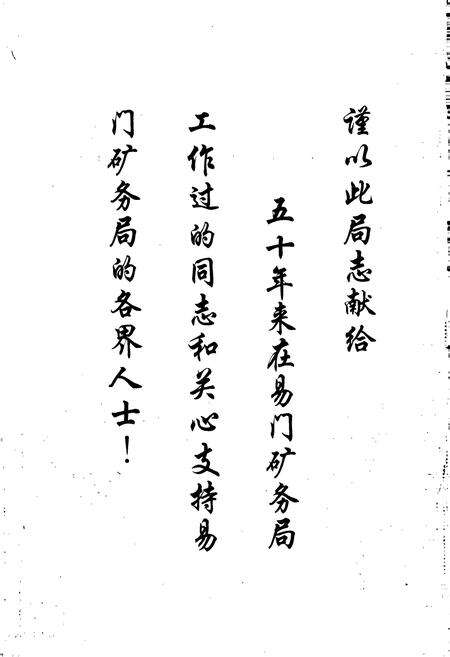 謹以此局志献给
五十年来在易门矿务局
工作过的同志和关心支持易
门矿务局的各界人士！